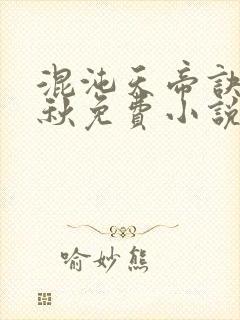 混沌天帝訣
秋免費小說
喻妙熊